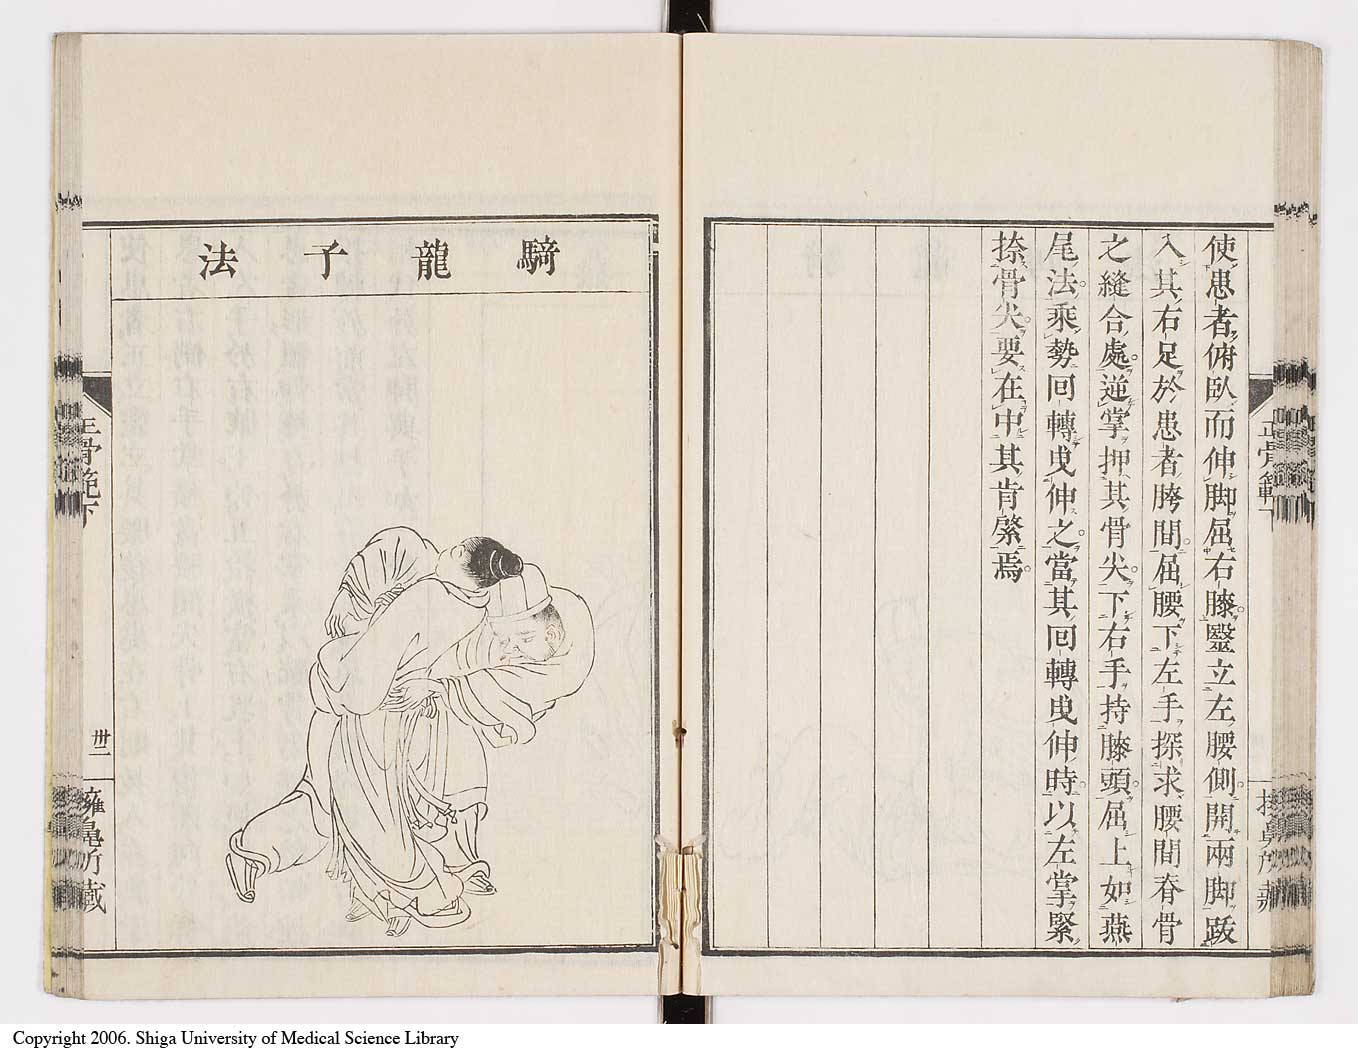 使患者俯臥而伸脚屈右膝竪立左腰側開兩脚跋
入其右足於患者胯間屈腰下左手探求腰間脊骨
之縫合處逆掌押其骨尖下右手持膝頭屈上如燕
尾法乘勢回轉曳伸之當其回轉曳伸時以左掌緊
捺骨尖要在中其肯綮焉
正骨範下
騎龍子法
正骨範下
卅一
擁鼻所藏
Copyright 2006. Shiga University of Medical Science Library